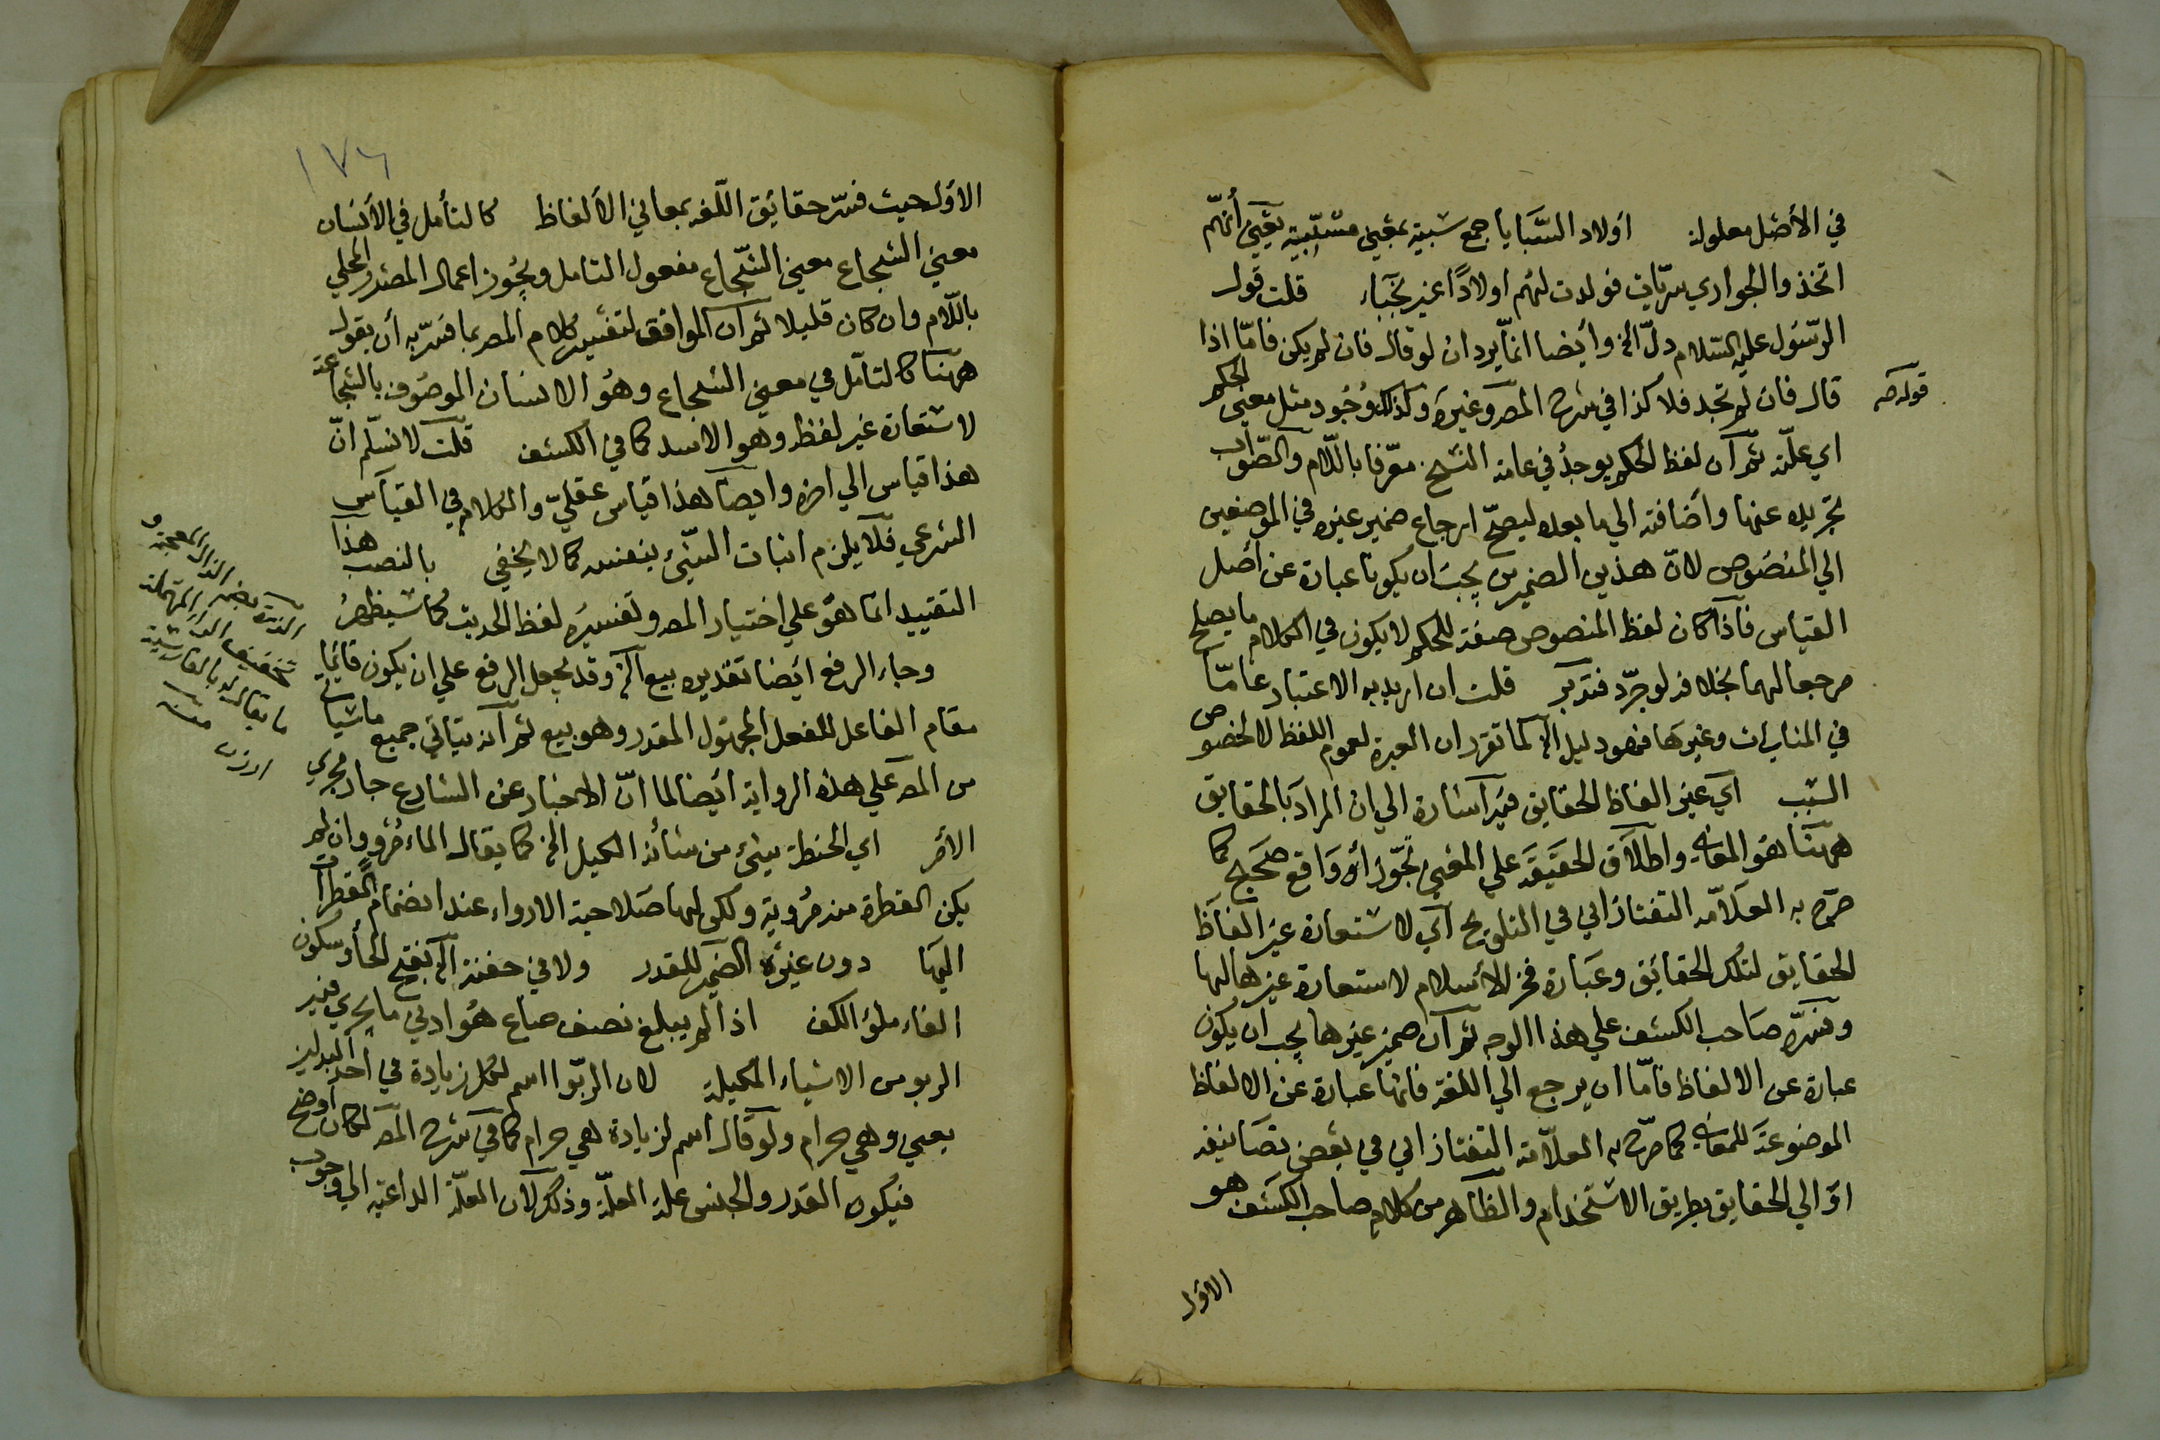 في الأصل معلولة اولاد السَّبايا جمع سبية بمعنى مسبية يعني أنهم
اتخذوا الجواري سريات فولدت لهم اولادًا غير نجباء قلت قول
الرّسول عليه السّلام دلّ الخ وأيضا انما يرد ان لو قال فان لم يكن فامّا اذا
قال فان لم تجد فلا كذا في شرح المص وغيره وكذلك وُجُود مثل معنى الحكم
قوله صح
اي علّته ثم آن لفظ الحكم يوجد في عامة النسخ معرّفا باللّام والصّواب
تجريده عنها وأضافته الي ما بعده ليصحّ ارجاع ضمير غيره في الموضعين
الي المنصُوص لانّ هذين الضميرين يجب ان يكونا عبارة عن أصل
القياس فآذا كان لفظ المنصوص صفة للحكم لا يكون في الكلام ما يصلح
مرجعا لهما بخلافه لو جرّد فتدبر قلت ان اريد به الاعتبار عامّا
في المثلات وغيرها فهو دليل الخ لما تقرر ان العبرة لعموم اللفظ لا لخصوص
السّبب آي غير الفاظ الحقايق فيه آشارة الي ان المراد بالحقايق
ههنا هو المعاني واطلاق الحقيقة علي المعني تجوّز أو واقع صحيح كما
صرّح به العلاّمة التفتازاني في التلويح آي لاستعارة غير الفاظ
الحقايق لتلك الحقائق وعبارة فخر الأسلام لاستعارة غيرها لها
وفسّره صاحب الكشف علي هذا الوجه ثم آن ضمير غيرها يجب ان يكون
عبارة عن الالفاظ فامّا ان يرجع الي اللغة فانها عبارة عن الالفاظ
الموضوعة للمعاني كما صرّح به العلاّمة التفتازاني في بعض تصانيفه
اوَ الي الحقايق بطريق الاستخدام والظاهر من كلام صاحب الكشف هو
الاوّل
١٧٦
الاوّل حيث فسّر حقائق اللّغة بمعاني الألفاظ كالتأمل في الأنسان
معني الشجاع معني الشّجاع مفعول التامل ويجُوز اعمال المصدر المحلي
باللّام وان كان قليلا ثم آن الموافق لتفسير كلام المص بما فسّر به أن يقول
ههنا كالتأمّل في معني الشجاع وهُو الانسان الموصُوف بالشجاعة
لاستعارة غير لفظه وهو الاسد كما في الكشف قلت لا نسلّم انّ
هذا قياس الي اخره وايضا هذا قياس عقليّ والكلام في القياس
الشرعي فلا يلزم اثبات الشّيئ بنفسه كما لا يخفي بالنصب هذا
التقييد انما هو علي اختيار المص وتفسيره لفظ الحديث كما سيظهرُ
وجاء الرفع أيضا تقديره بيع الخ وقد يجعل الرفع علي ان يكون قائما
مقام الفاعل للفعل المجهول المقدر وهو بيع ثم آنه يتأتي جميع ما سيأتي
من المص علي هذه الرواية ايضا لما انّ الاخبار عن الشارع جار مجري
الأمر اي الحنطة شيئ من شأنه الكيل الخ كما يقال الماء مُرْوٍ وان لم
يكن القطرة منه مُروية ولكن لها صَلاحية الارواء عند انضمام القطرات
اليها دون غيره الضمير للقدر ولا في حفنة الخ بفتح الحأ وسكون
الفاء ملؤ الكف اذا لم يبلغ نصف صاع هُو ادني ما يجري فيه
الربو من الاشياء المكيلة لان الربوا اسم لكل زيادة في احد البدلين
يعني وهي حرام ولو قال اسم لزيادة هي حرام كما في شرح المص لكان أوضح
فيكون القدر والجنس علة العلّة وذلك لان العلّة الداعية الي وجوب
الذرة بضم الذال المعجمة و
تخفيف الراء المهملة
ما يقال له بالفارسية
ارزن منه